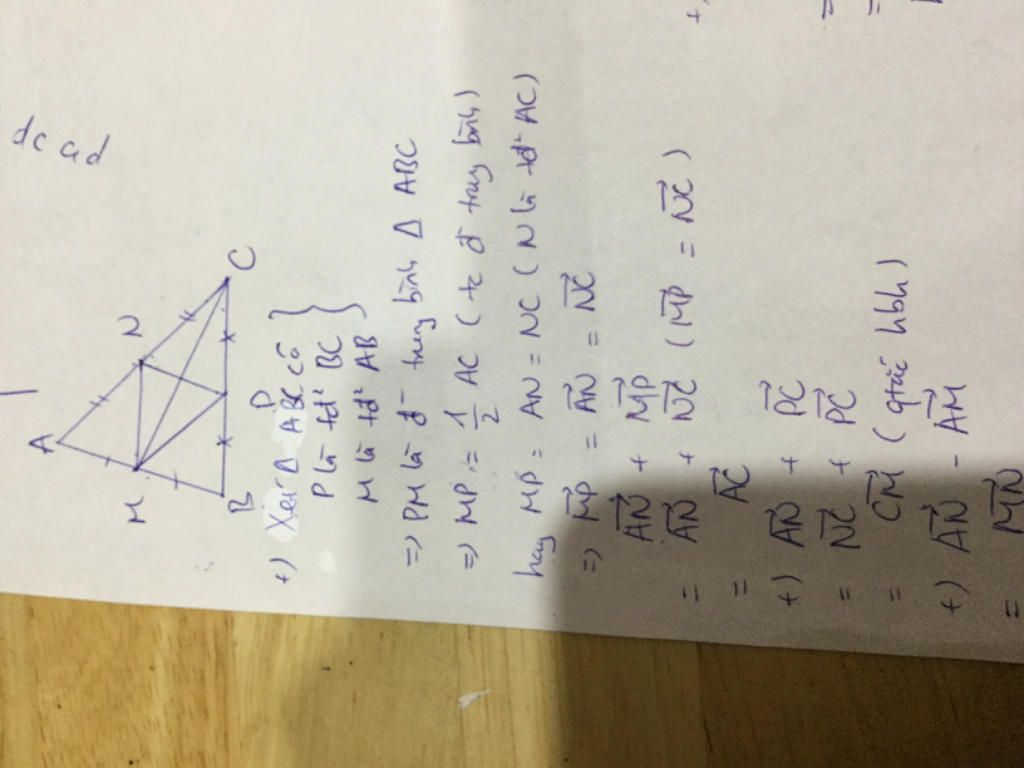 dc ad
A
M
N
B
P
C
+) Xét Δ ABC có
P là tđ² BC
M là tđ² AB
=) PM là đ trung bình Δ ABC
=) MP = 1/2 AC (tc đ trung bình)
hay MP = AN = NC (N là tđ² AC)
=) M͞P⃗ = A͞N⃗ = N͞C⃗
A͞N⃗ + M͞P⃗
= A͞N⃗ + N͞C⃗ (M͞P⃗ = N͞C⃗)
= A͞C⃗
+) A͞N⃗ + P͞C⃗
= N͞C⃗ + P͞C⃗
= C͞M⃗ (qtắc hbh)
+) A͞N⃗ - A͞M⃗
= M͞N⃗